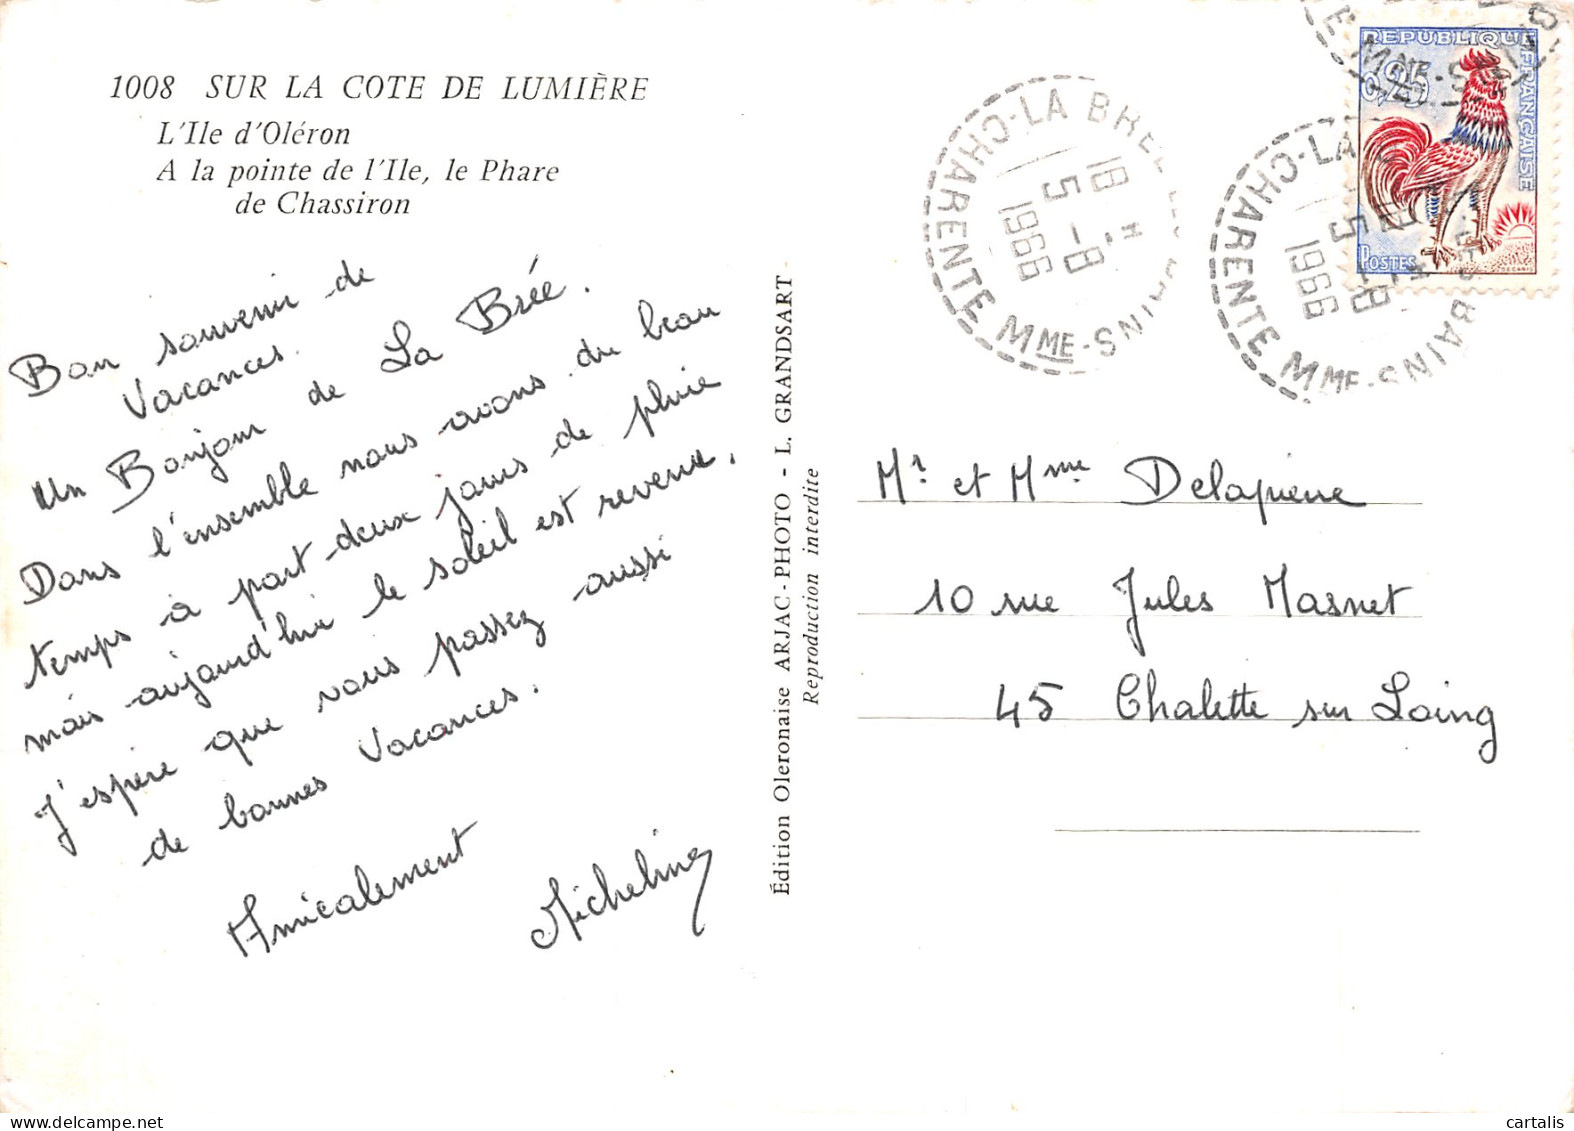 1008 SUR LA COTE DE LUMIÈRE
L'Ile d'Oléron
A la pointe de l'Ile, le Phare
de Chassiron
Bon souvenir de
Vacances.
Un Bonjour de La Brée.
Dans l'ensemble nous avons du beau
temps à part deux jours de pluie
mais aujourd'hui le soleil est revenu.
J'espère que vous passez aussi
de bonnes Vacances.
Amicalement
Micheline
Édition Oleronaise ARJAC-PHOTO - L. GRANDSART
Reproduction interdite
CHO-LA BREE LES BAINS-
CHARENTE MME
18 H
5 -8
1966
CHO-LA BREE LES BAINS-
CHARENTE MME
18 H
5 -8
1966
E MME-S
REPUBLIQUE FRANÇAISE
0,25
POSTES
DECARIS
Mr et Mme Delapierre
10 rue Jules Masnet
45 Chalette sur Loing
cartalis